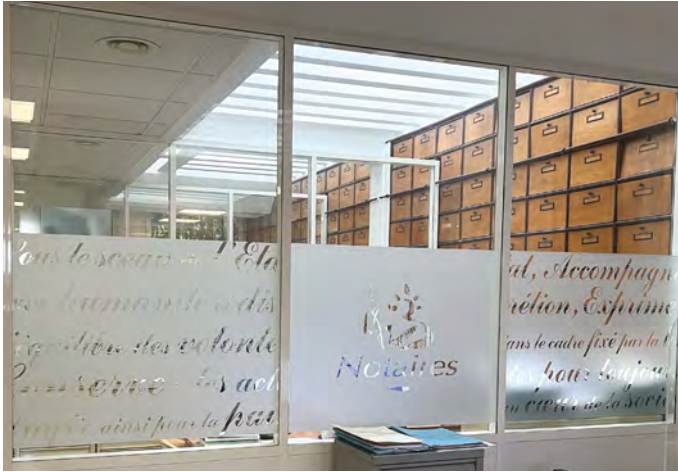 ous le sceau de l'Eta
humanité dis
équilibre des volonté
Conserve les act
ainsi pour la pai
Notaires
al, Accompagn
rétion, Exprime
ans le cadre fixé par la l
tes pour toujou
u cœur de la socié